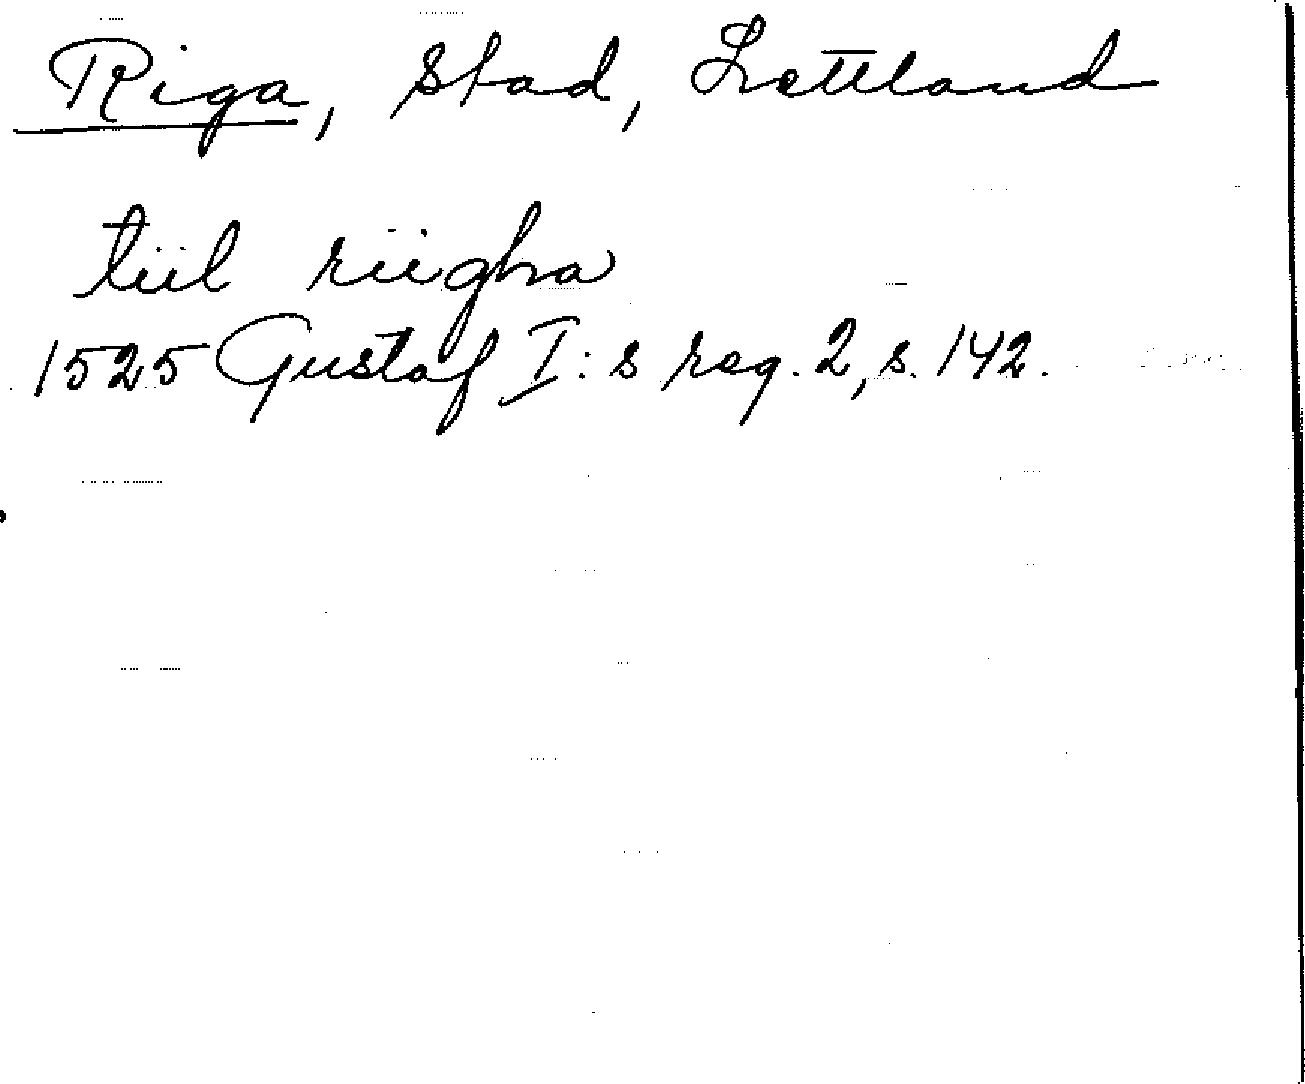 Riga, stad, Lettland
tiil riigha
1525 Gustaf I:s reg. 2, s. 142.